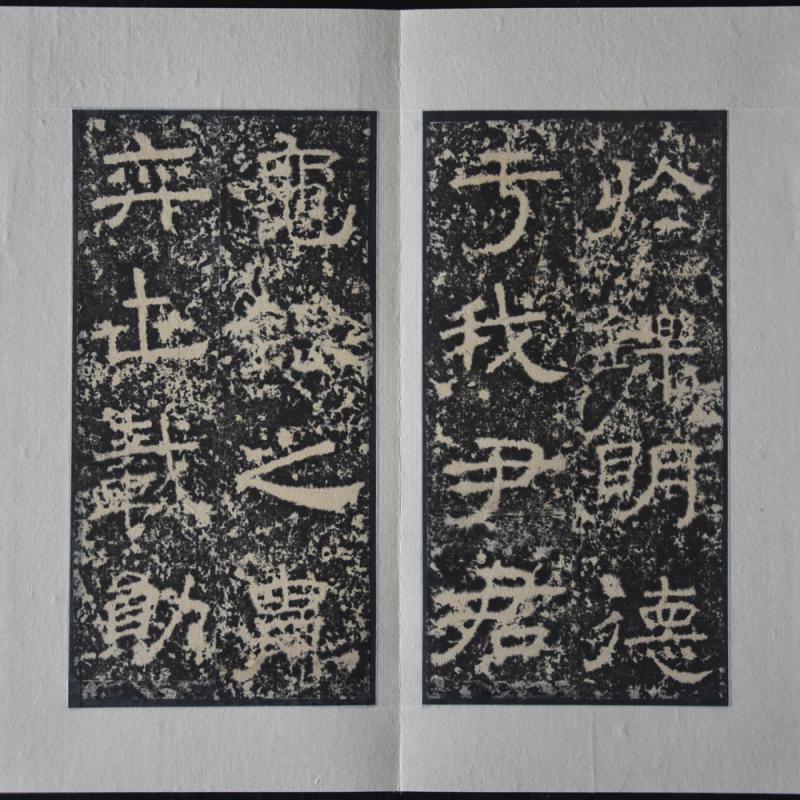 於鑠明德
于我尹君
龜銀之冑
弈世載勛